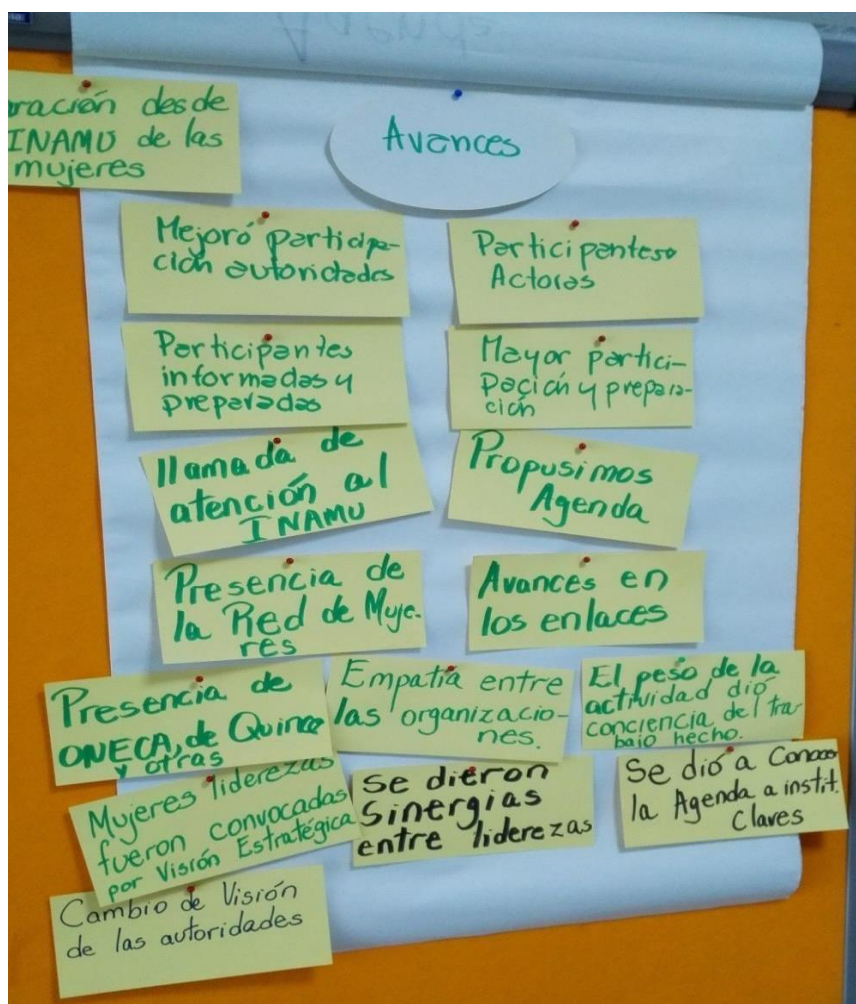 Agenda
ración desde
INAMU de las
mujeres
Avances
Mejoró participa-
ción autoridades
Participantes
Actoras
Participantes
informadas y
preparadas
Mayor partici-
pación y prepara-
ción
llamada de
atención al
INAMU
Propusimos
Agenda
Presencia de
la Red de Muje-
res
Avances en
los enlaces
Presencia de
ONECA, de Quince
y otras
Empatía entre
las organizacio-
nes.
El peso de la
actividad dió
conciencia del tra-
bajo hecho.
Mujeres liderezas
fueron convocadas
por Visión Estratégica
Se dieron
Sinergias
entre liderezas
Se dió a Conocer
la Agenda a instit.
Claves
Cambio de Visión
de las autoridades